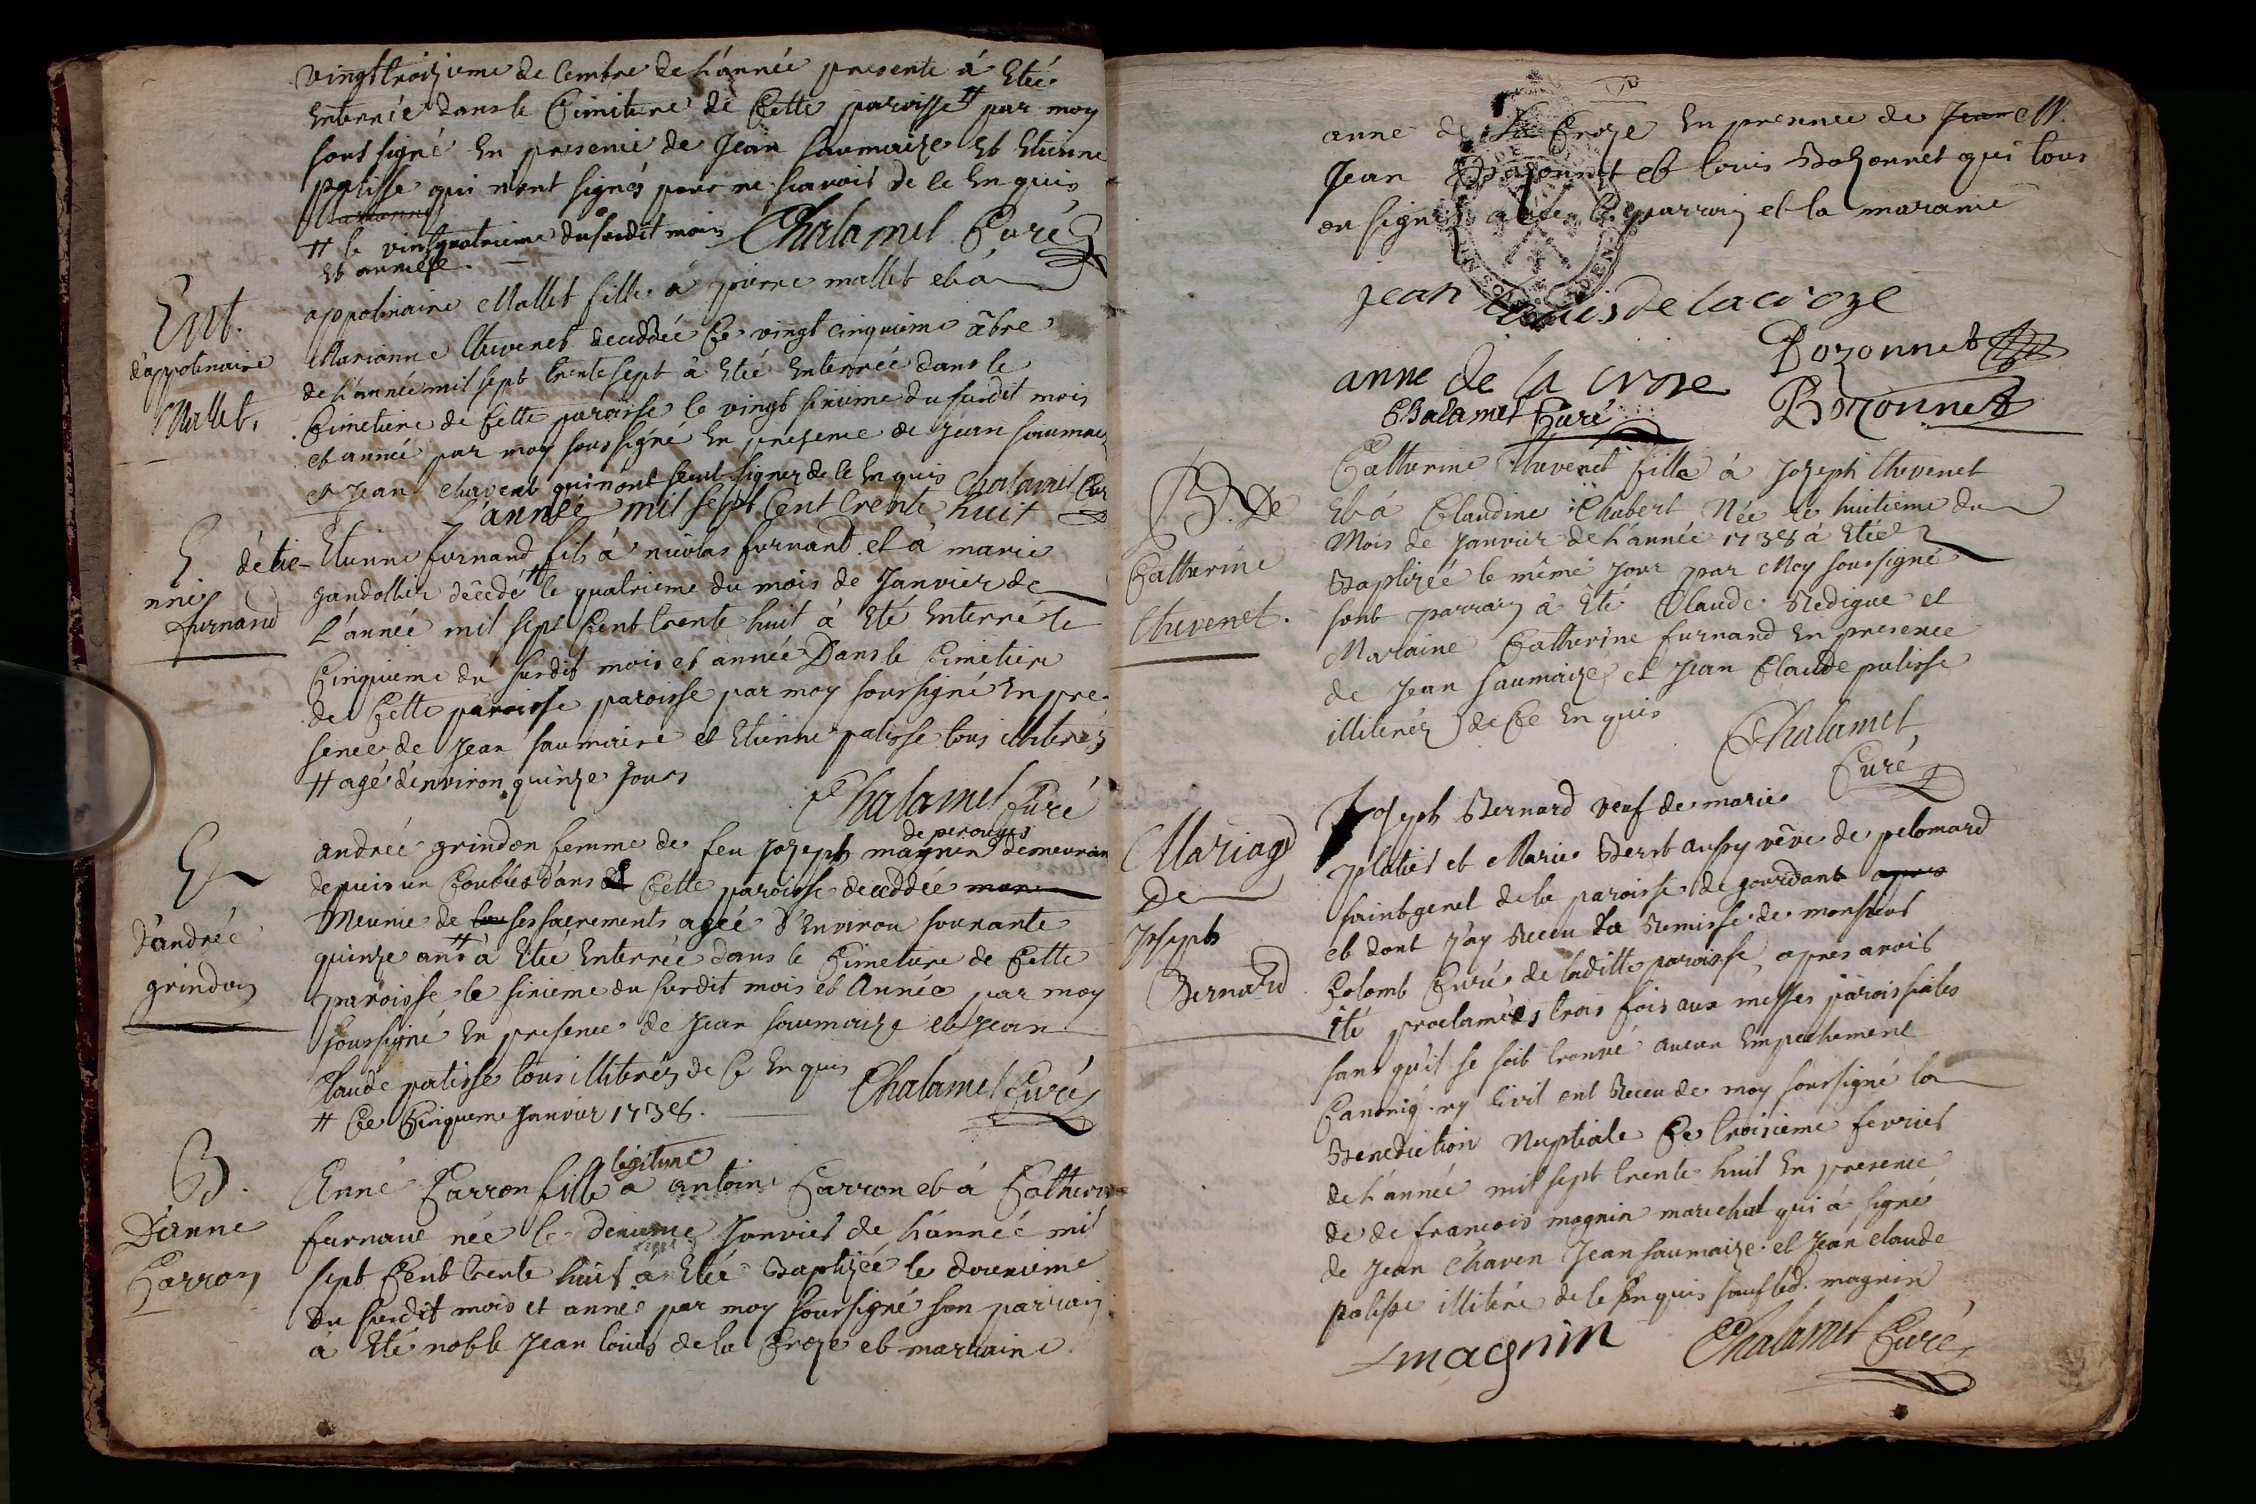 vingt troizieme decembre de l'année presente à Eteé
Enterrée dans le Cimitiere de Cette paroisse # par moy
soussigné En presence de Jean saumaize Et Etienne
palisse qui n'ont signés pour ne scavoir de ce Enquis
# le vintquatrieme du susdit mois Chalamel Curé
Et année
Ent.
d'appolinaire
Mallet.
appolinaire Mallet fille à pierre mallet et à
Marianne thevenet decedée Ce vingt cinquieme xbre
de l'année mil sept trente sept à Eteé Enterrée dans le
Cimetiere de Cette paroisse le vingt sixieme du susdit mois
et année par moy soussigné En presence de Jean saumaize
et Jean chavent qui n'ont sceut signer de ce Enquis Chalamel Curé
L'année mil sept Cent trente huit
E d'etie-
nne
furnand
Etienne furnand fils à nicolas furnand et à marie
gandollier decedé # le quatrieme du mois de Janvier de
L'année mil sept Cent trente huit à Eté Enterré le
Cinquieme du susdit mois et année Dans le Cimetiere
de Cette paroisse paroisse par moy soussigné En pre-
sence de Jean saumaize et Etienne palisse tous illiterés
# agé d'environ quinze Jours
Chalamel Curé
E
d'andrée
grindon
de perouges
andrée grindon femme de feu Jozeph magnin demeurant
depuis un dans Cette paroisse decedée
Meunie de ses sacrements agée d'Environ soixante
quinze ans # à Eteé Enterrée dans le Cimetiere de Cette
paroisse le sixieme du susdit mois et Année par moy
soussigné En presence de Jean saumaize et Jean
Claude palisse tous illiterés de Ce Enquis Chalamel Curé
# Ce Cinquieme Janvier 1738.
B.
D'anne
Carron
legitime
Enné Carron fille à antoine Carron et à Catherine
furnand née le dixieme Janvier de l'année mil
sept Cent trente huit à Eteé Baptizée le douzieme
du susdit mois et année par moy soussigné son parrain
à Eté noble Jean louis de la Croze et marraine
anne de la Croze En presence de Jean M.
Jean Bozonnet et louis Bozonnet qui tous
on signé avec le parrain et la maraine
jean louis de lacroze
Bozonnet
anne de la croze
Chalamel Curé
Bozonnet
B. De
Catherine
thevenet.
Catherine thevenet fille à Jozeph thevenet
Et à Claudine Chubert Née le huitieme du
Mois de Janvier de l'année 1738 à Eteé
Baptizée le même jour par Moy soussigné
sont parrain à Eté Claude Bedigue et
Maraine Catherine furnand En presence
de Jean saumaize et Jean Claude palisse
illiterés de Ce Enquis
Chalamel
Curé
Mariage
De
Joseph
Bernard
Joseph Bernard veuf de marie
platier et Marie Berst aussy vêve de pelomard
saint genet de la paroisse de gourdans apres
et dont j'ay Receu la Remisse de monsieur
Colomb Curé de laditte paroisse, apres avoir
Eté proclamées trois fois aux messes paroissiales
sans qu'il se soit trouvé aucun Empechement
Canoniq. ny Civil ont Receu de moy soussigné la
Benediction Nuptiale Ce troisieme fevrier
de l'année mil sept trente huit En presence
de de francois magnin marechal qui à signé
de Jean Chaven Jean saumaize et Jean claude
palisse illiteré de Ce Enquis sauf led. magnin
f magnin Chalamel Curé